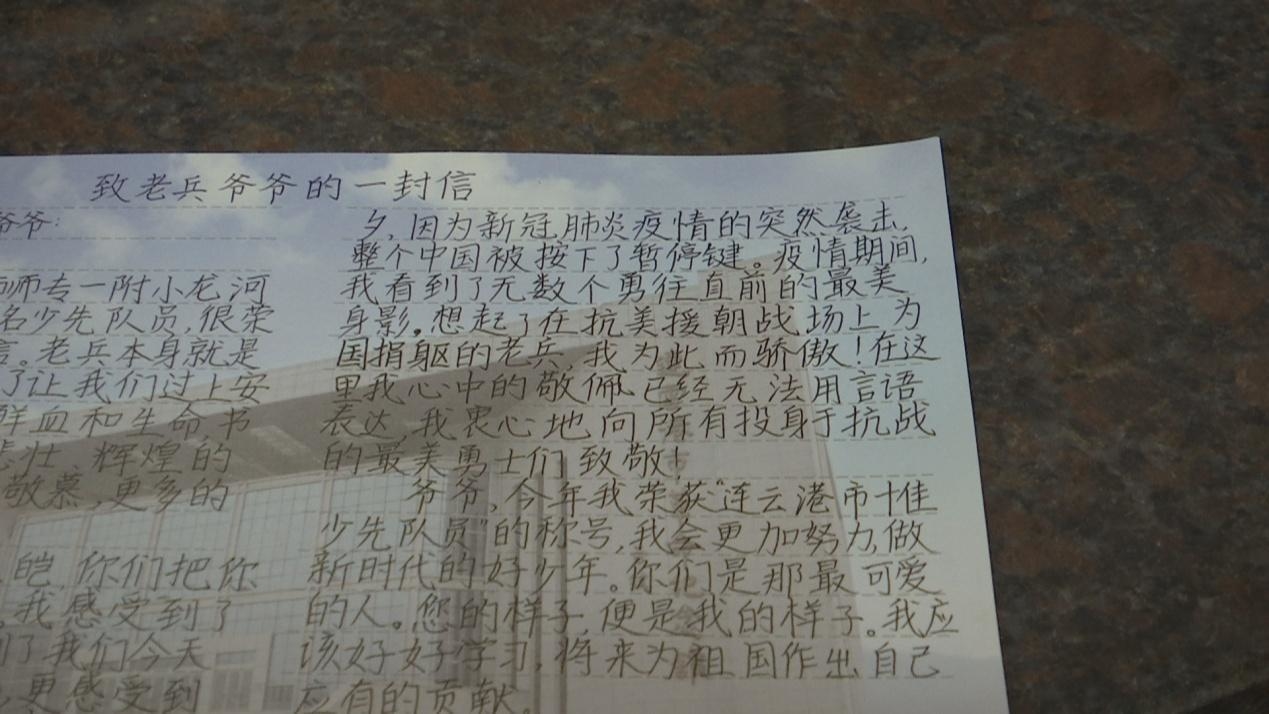 致老兵爷爷的一封信
爷爷：
师专一附小龙河
名少先队员，很荣
信。老兵本身就是
了让我们过上安
鲜血和生命书
悲壮、辉煌的
敬慕，更多的
皑，你们把你
我感受到了
到了我们今天
更感受到
夕，因为新冠肺炎疫情的突然袭击，
整个中国被按下了暂停键。疫情期间，
我看到了无数个勇往直前的最美
身影。想起了在抗美援朝战场上为
国捐躯的老兵，我为此而骄傲！在这
里我心中的敬佩已经无法用言语
表达，我衷心地向所有投身于抗战
的最美勇士们致敬！
爷爷，今年我荣获“连云港市十佳
少先队员”的称号，我会更加努力，做
新时代的好少年。你们是那最可爱
的人。您的样子，便是我的样子。我应
该好好学习，将来为祖国作出自己
应有的贡献。